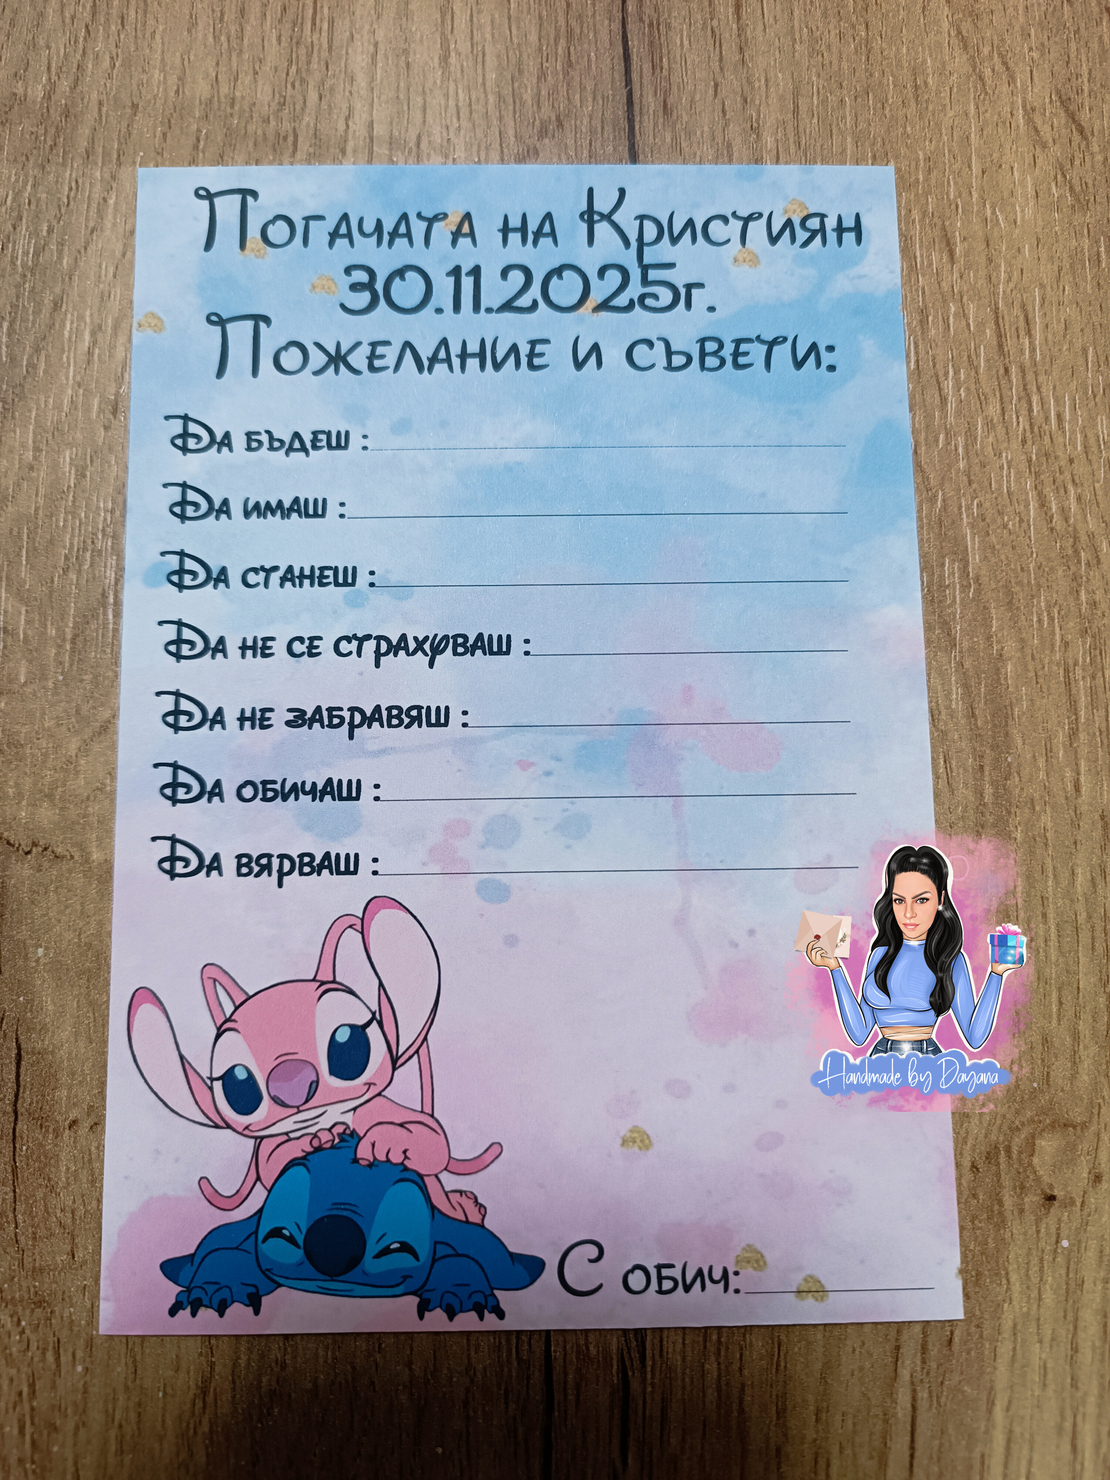 Погачата на Кристиян
30.11.2025г.
Пожелание и съвети:
Да бъдеш :
Да имаш :
Да станеш :
Да не се страхуваш :
Да не забравяш :
Да обичаш :
Да вярваш :
Handmade by Dayana
С обич: